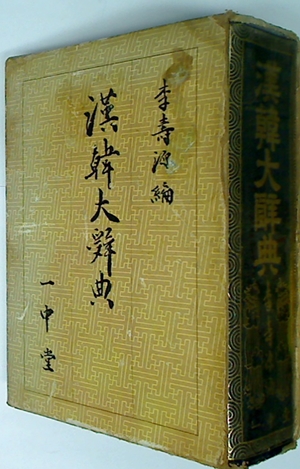 李壽源編
漢韓大辭典
一中堂
漢韓大辭典